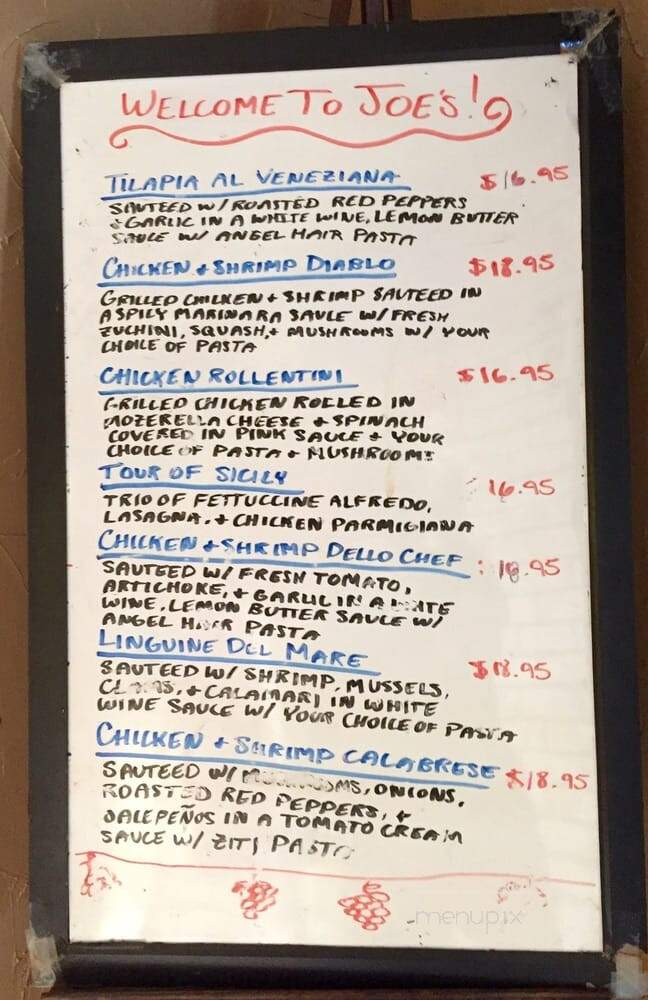 WELCOME TO JOE'S!
TILAPIA AL VENEZIANA $16.95
SAUTEED W/ ROASTED RED PEPPERS
+ GARLIC IN A WHITE WINE, LEMON BUTTER
SAUCE W/ ANGEL HAIR PASTA
CHICKEN + SHRIMP DIABLO $18.95
GRILLED CHICKEN + SHRIMP SAUTEED IN
A SPICY MARINARA SAUCE W/ FRESH
ZUCHINI, SQUASH, + MUSHROOMS W/ YOUR
CHOICE OF PASTA
CHICKEN ROLLENTINI $16.95
GRILLED CHICKEN ROLLED IN
MOZERELLA CHEESE + SPINACH
COVERED IN PINK SAUCE + YOUR
CHOICE OF PASTA + MUSHROOMS
TOUR OF SICILY 16.95
TRIO OF FETTUCCINE ALFREDO,
LASAGNA, + CHICKEN PARMIGIANA
CHICKEN + SHRIMP DELLO CHEF
SAUTEED W/ FRESH TOMATO,
ARTICHOKE, + GARLIC IN A WHITE
WINE, LEMON BUTTER SAUCE W/
ANGEL HAIR PASTA
LINGUINE DEL MARE $18.95
SAUTEED W/ SHRIMP, MUSSELS,
CLAMS, + CALAMARI IN WHITE
WINE SAUCE W/ YOUR CHOICE OF PASTA
CHICKEN + SHRIMP CALABRESE $18.95
SAUTEED W/ MUSHROOMS, ONIONS,
ROASTED RED PEPPERS, +
JALEPEÑOS IN A TOMATO CREAM
SAUCE W/ ZITI PASTA
menupix